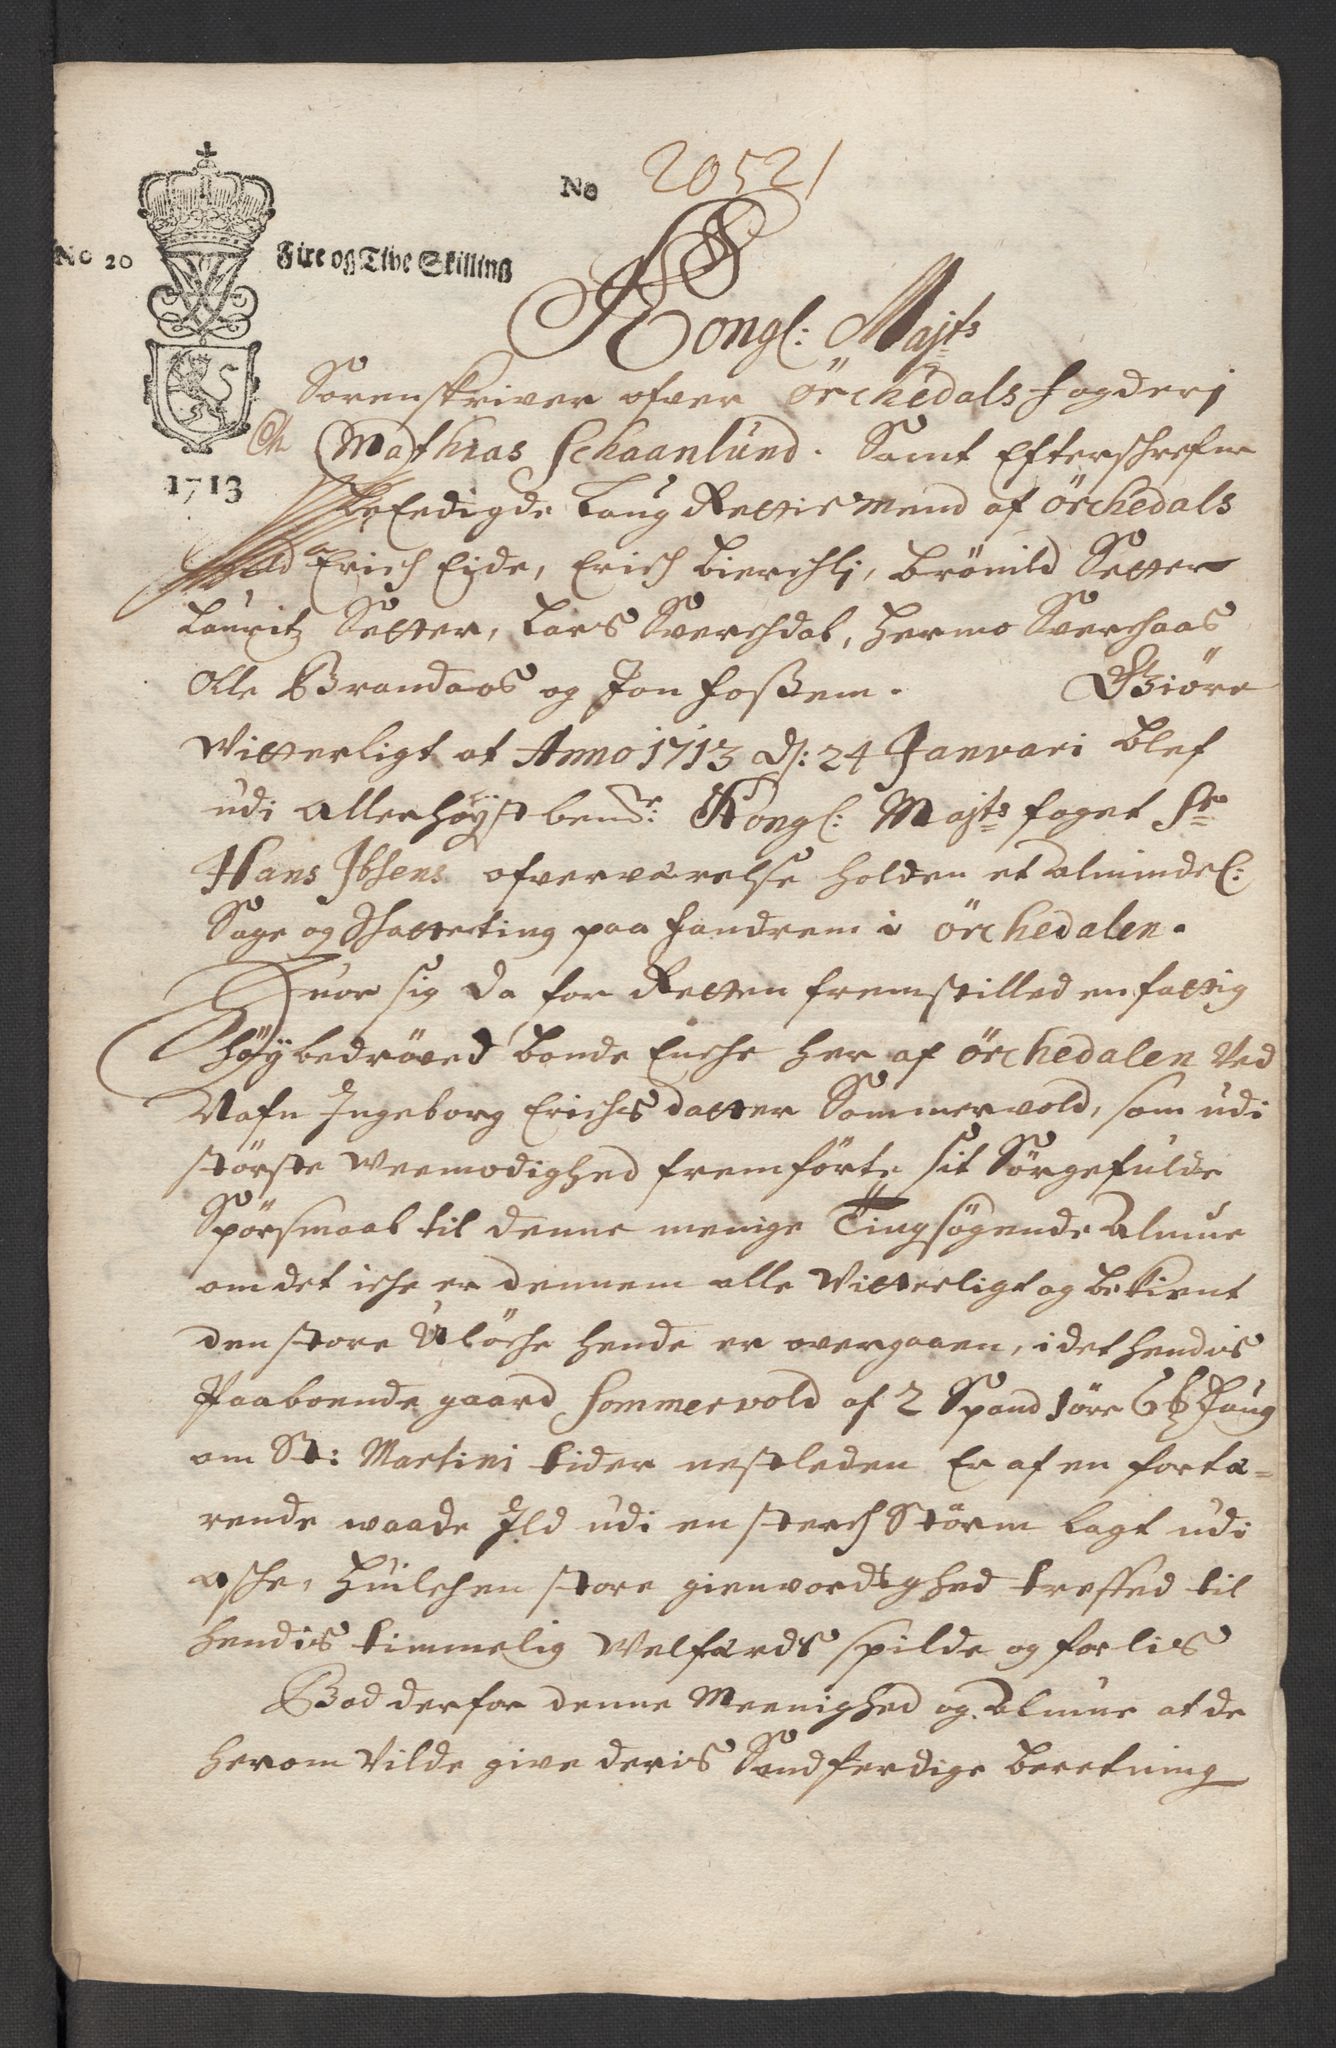 No 20521
No 20 Fire og Tive Skilling
1713
Kongl: Majts
Sorenskriver ofver Örchedals fogderj
Mathias Schaanlund. Samt Efterschrefne
be Eedigde Laug Rettis mend af Örchedals
Erich Eide, Erich Bierchlj, Brönild Setter
Lauritz Setter, Lars Sverchdal, Hermo Sverchaas
Olle Brandaas og Jon Foßem. Giöre
Vitterligt at Anno 1713 d: 24 Janvari blef
udi allerhöyst bemte: Kongl: Majts foget Sr
Hans Ibsens ofverværelse holden et almindel:
Sage og Skatteting paa Fandrem i Örchedalen.
Huor sig da for Retten fremstilled en fattig
höybedröved bonde Enche her af Örchedalen Ved
Nafn Ingeborg Erichs datter Sommervold, som udi
störste Veemodighed fremförte sit Sörgefulde
Spörsmaal til denne menige Tingsögende Almue
om det iche er dennem alle Vitterligt og bekient
den store Ulöche hende er overgaaen, i det hendis
Paaboende gaard Sommervold af 2 Spand 1 öre 6 Laug
om St: Martini tider nestleden Er af en fortæ-
rende waade Ild udi en sterch Storm lagt udi
asche, Huilchen store gienvordighed treffed til
hendis timmelig Velfærds spilde og forlis
Bad derfor denne Meenighed og Almue at de
herom Vilde give deris Sandferdige beretning